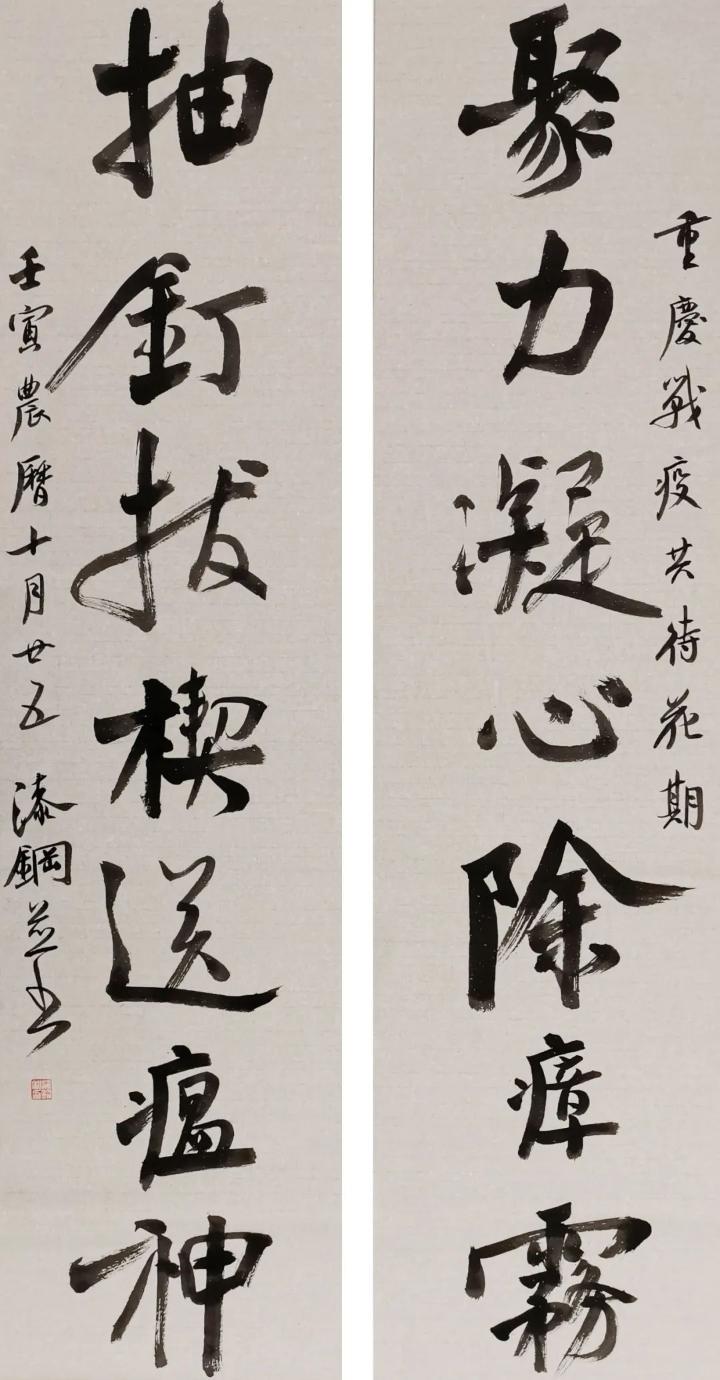 重慶戰疫共待花期
聚力凝心除瘴霧
抽釘拔楔送瘟神
壬寅農曆十月廿五 漆鋼並書